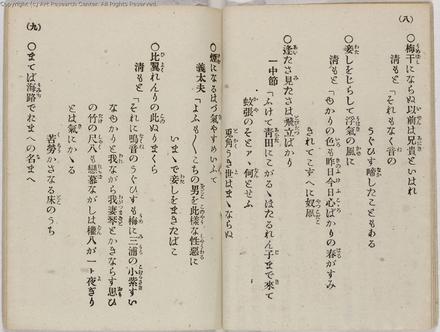 (八)
○梅干にならぬ以前は兄貴といはれ
清もと「それもなく音の
うぐひす啼したこともある
○妾しをじらして浮氣の風に
清もと「もかりの色も昨日今日心ばかりの春がすみ
きれてこずへに奴凧
○逢たさ見たさは飛立ばかり
一中節「ふけて青田にこがるゝほたるれん子まで來て
蚊張のそとァ、何とせふ
兎角うき世はまゝならぬ
(九)
○煙になるはづ氣やすめいふて
義太夫「よふも〳〵こちの男を此樣な性惡に
いまゝで妾しをまきたばこ
○比翼れんりの此ぬりまくら
清もと「それに鳴音のうぐひすも梅に三浦の小紫すい
なもかりと我ながら我妻琴とかきならす思ひ
の竹の尺八も戀慕ながしは權八が一ト夜ぎり
とは氣にかゝる
苦勞かさなる床のうち
○まてば海路でたまへの名まへ